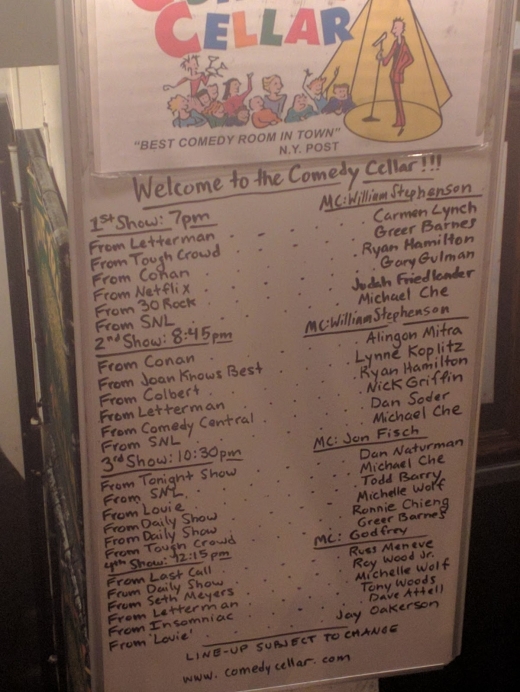 CELLAR
"BEST COMEDY ROOM IN TOWN"
N.Y. POST
Welcome to the Comedy Cellar!!!
1st Show: 7pm MC: William Stephenson
From Letterman Carmen Lynch
From Tough Crowd Greer Barnes
From Conan Ryan Hamilton
From Netflix Gary Gulman
From 30 Rock Judah Friedlander
From SNL Michael Che
2nd Show: 8:45pm MC: William Stephenson
From Conan Alingon Mitra
From Joan Knows Best Lynne Koplitz
From Colbert Ryan Hamilton
From Letterman Nick Griffin
From Comedy Central Dan Soder
From SNL Michael Che
3rd Show: 10:30pm MC: Jon Fisch
From Tonight Show Dan Naturman
From SNL Michael Che
From Louie Todd Barry
From Daily Show Michelle Wolf
From Daily Show Ronnie Chieng
From Tough Crowd Greer Barnes
4th Show: 12:15pm MC: Godfrey
From Last Call Russ Meneve
From Daily Show Roy Wood Jr.
From Seth Meyers Michelle Wolf
From Letterman Tony Woods
From Insomniac Dave Attell
From 'Louie' Jay Oakerson
LINE-UP SUBJECT TO CHANGE
www.comedycellar.com